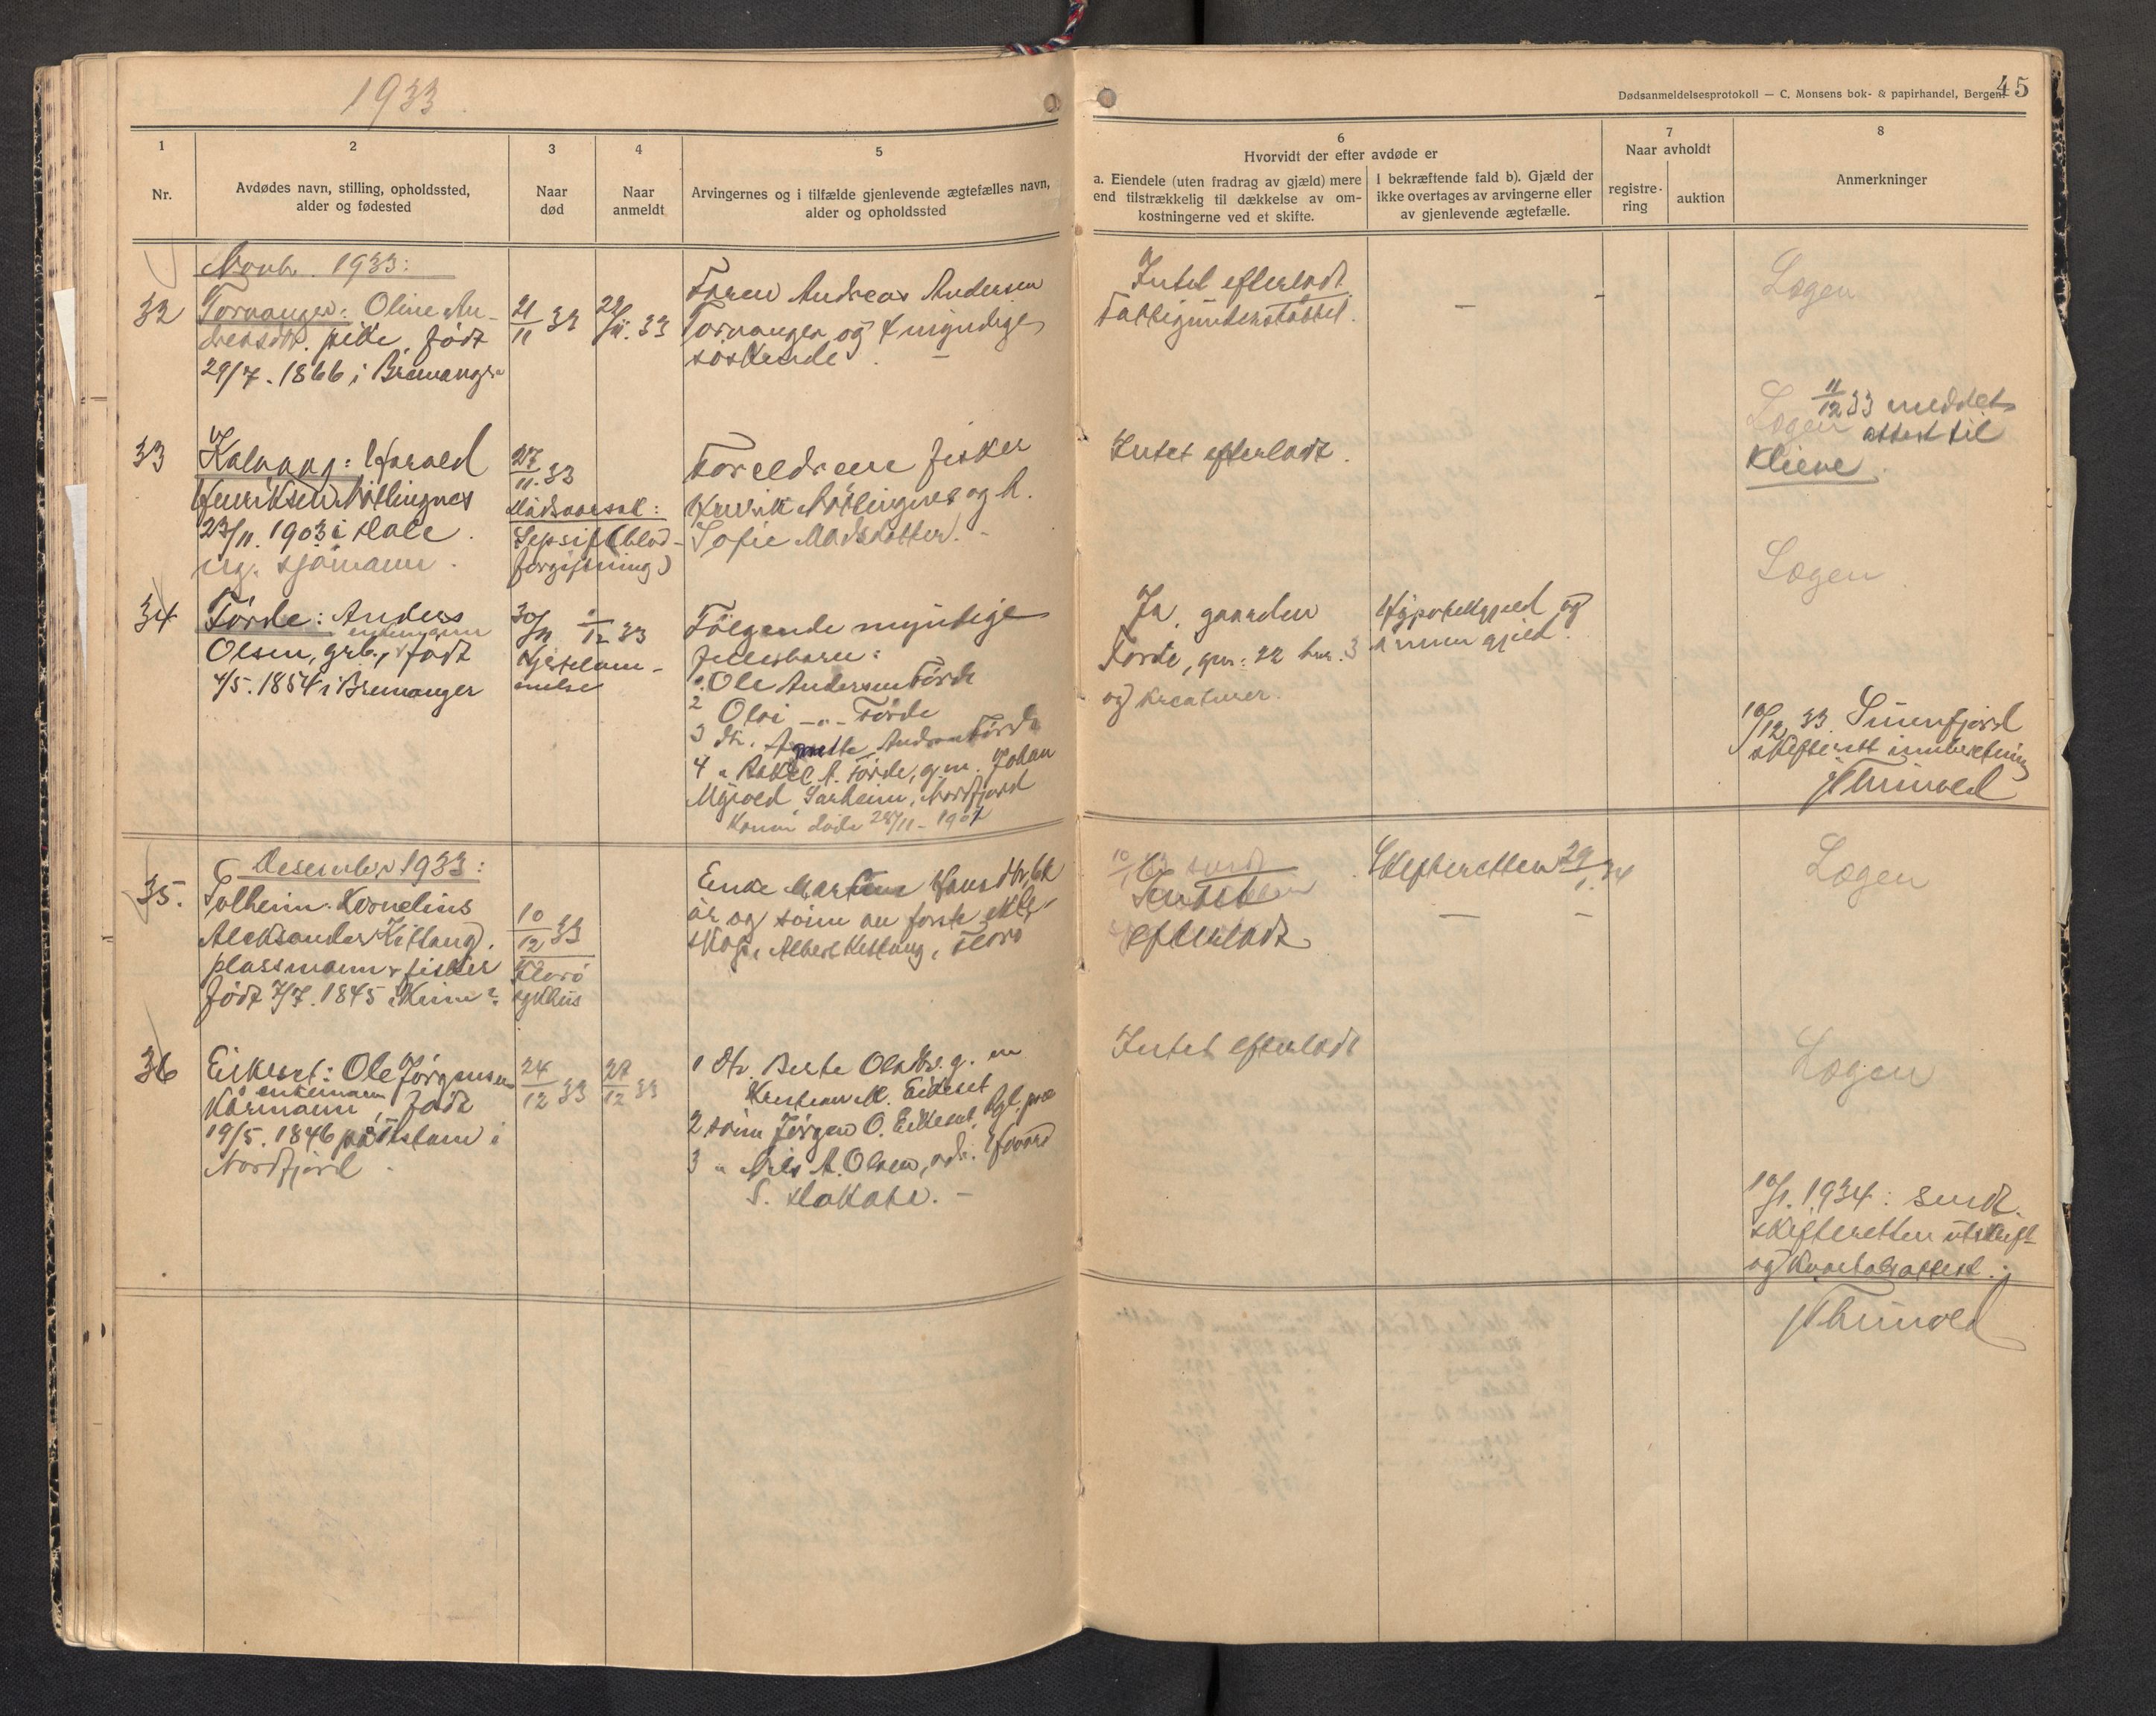 1933
Dødsanmeldelsesprotokoll — C. Monsens bok- & papirhandel, Bergen.
45
1
2
3
4
5
6
7
8
Nr.
Avdødes navn, stilling, opholdssted,
alder og fødested
Naar
død
Naar
anmeldt
Arvingernes og i tilfælde gjenlevende ægtefælles navn,
alder og opholdssted
Hvorvidt der efter avdøde er
a. Eiendele (uten fradrag av gjæld) mere
end tilstrækkelig til dækkelse av om-
kostningerne ved et skifte.
I bekræftende fald b). Gjæld der
ikke overtages av arvingerne eller
av gjenlevende ægtefælle.
Naar avholdt
registre-
ring
auktion
Anmerkninger
Novb. 1933:
32
Torvanger: Oline An-
dreasdtr. pike, født
29/7. 1866 i Bremanger
21/11 33
22/11. 33
Faren Andreas Andersen
Torvanger og 4 myndige
søskende. —
Intet efterladt
Fattigunderstøttet.
—
—
Lægen
33
Kalvaag: Harald
Henriksen
23/11. 1903 i
ug. sjømann.
27/11. 33
Dødsaarsak:
Sepsis (blod-
forgiftning)
Foreldrene fisker
Henrik og h.
Sofie Madsdatter. -
Intet efterladt.
Lægen
11/12 33 meddelt
attest til
34
Førde: Anders
enkemann
Olsen, grb., født
4/5. 1854 i Bremanger
30/11
/12 33
Hjertelam-
melse
Følgende myndige
fellesbarn:
1. Ole Andersen Førde
2 Olai -"- Førde
3 dtr. Agnethe Andersen Førde
4 " Rakel A. Førde, g.m. Johan
Myvold Sørheim, Nordfjord
Konen døde 28/11 - 1907
Ja, gaarden
Førde, gnr: 22 bnr. 3
og kreaturer.
Hypotekgjeld og
annen gjeld.
Lægen.
10/12 33 Sunnfjord
skifterett innberetning
Desember 1933:
35.
Solheim. Kornelius
Aleksander Kittang,
plassmann & fisker
født 7/7. 1845 i Kinn
10/12 33
Florø
sykhus
Enke Hansdtr,
år og sønn av første ekte-
skap, Albert Kittang, Florø
sendt
Skifteretten 29/1. 34
Intet
efterladt
—
—
Lægen
36
Eikeset: Ole Jørgensen
enkemann
Kårmann, født
19/5. 1846 på i
Nordfjord
24/12 33
27/12 33
1 dtr. Berte Olsdtr. g. m
Kristian M. Eikeset
2 sønn Jørgen O. Eikeset,
3 " Nils A. Olsen, adr.
S. Dakota. —
Intet efterladt
Lægen
10/1. 1934: sendt
skifteretten utskrift
og kvartalsattest.